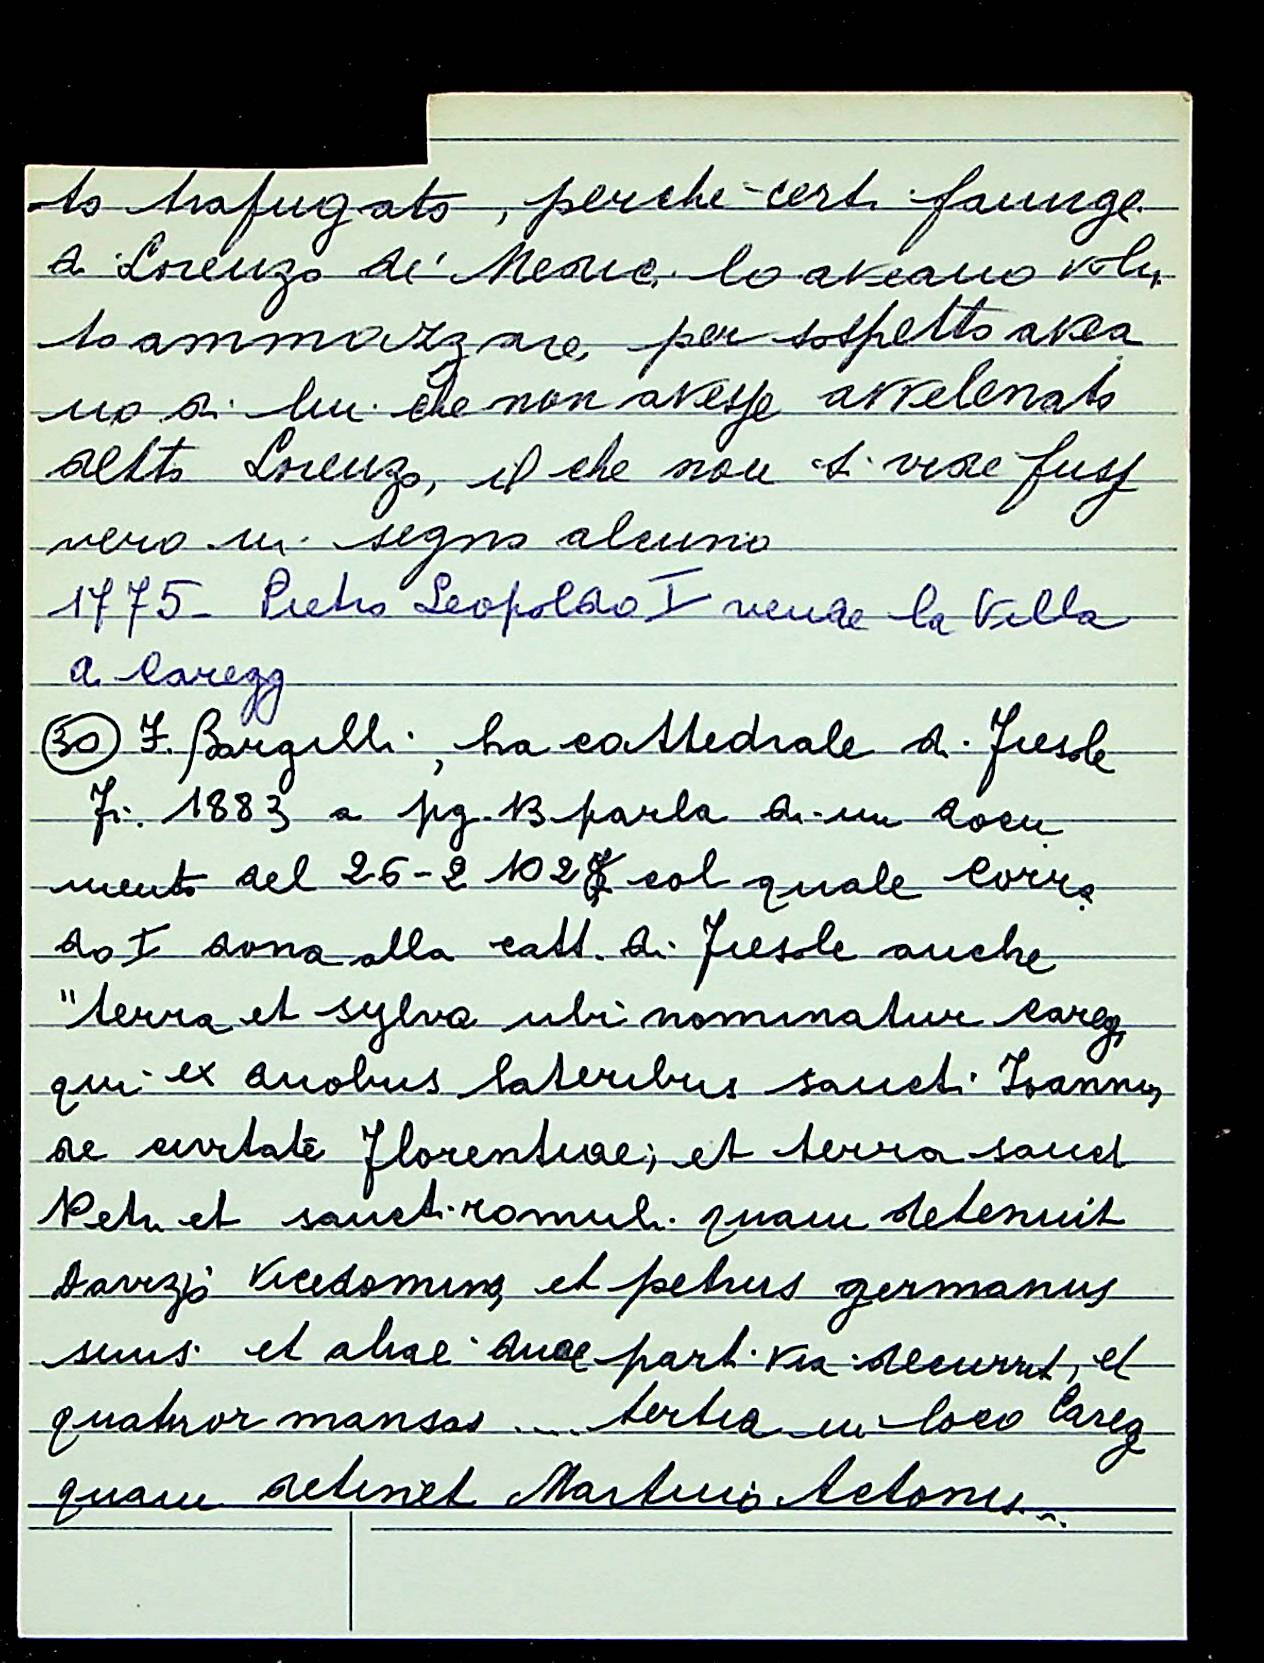 to trafugato, perche certi famigl.
di Lorenzo de' Medici lo aveano volu
to ammazzare, per sospetto avea
no di lui che non avesse avvelenato
detto Lorenzo, il che non si vide fuss
vero in segno alcuno
1775 - Pietro Leopoldo I vende la Villa
di Caregg
30 F. Bargilli, La cattedrale di Fiesole
Fi. 1883 a pg. 13 parla di un docu
mento del 26-2 1027 col quale Corra
do I dona alla catt. di Fiesole anche
"terra et sylva ubi nominatur Careg,
qui ex duobus lateribus sancti Ioannis,
de civitate Florentiae; et terra sanct
Petri et sancti romuli quam detenuit
Davizio Vicedominus et petrus germanus
suus et aliae duae parti via decurrit, et
quatuor mansos .... tertia in loco Careg
quam detinet Martinio tetonis...